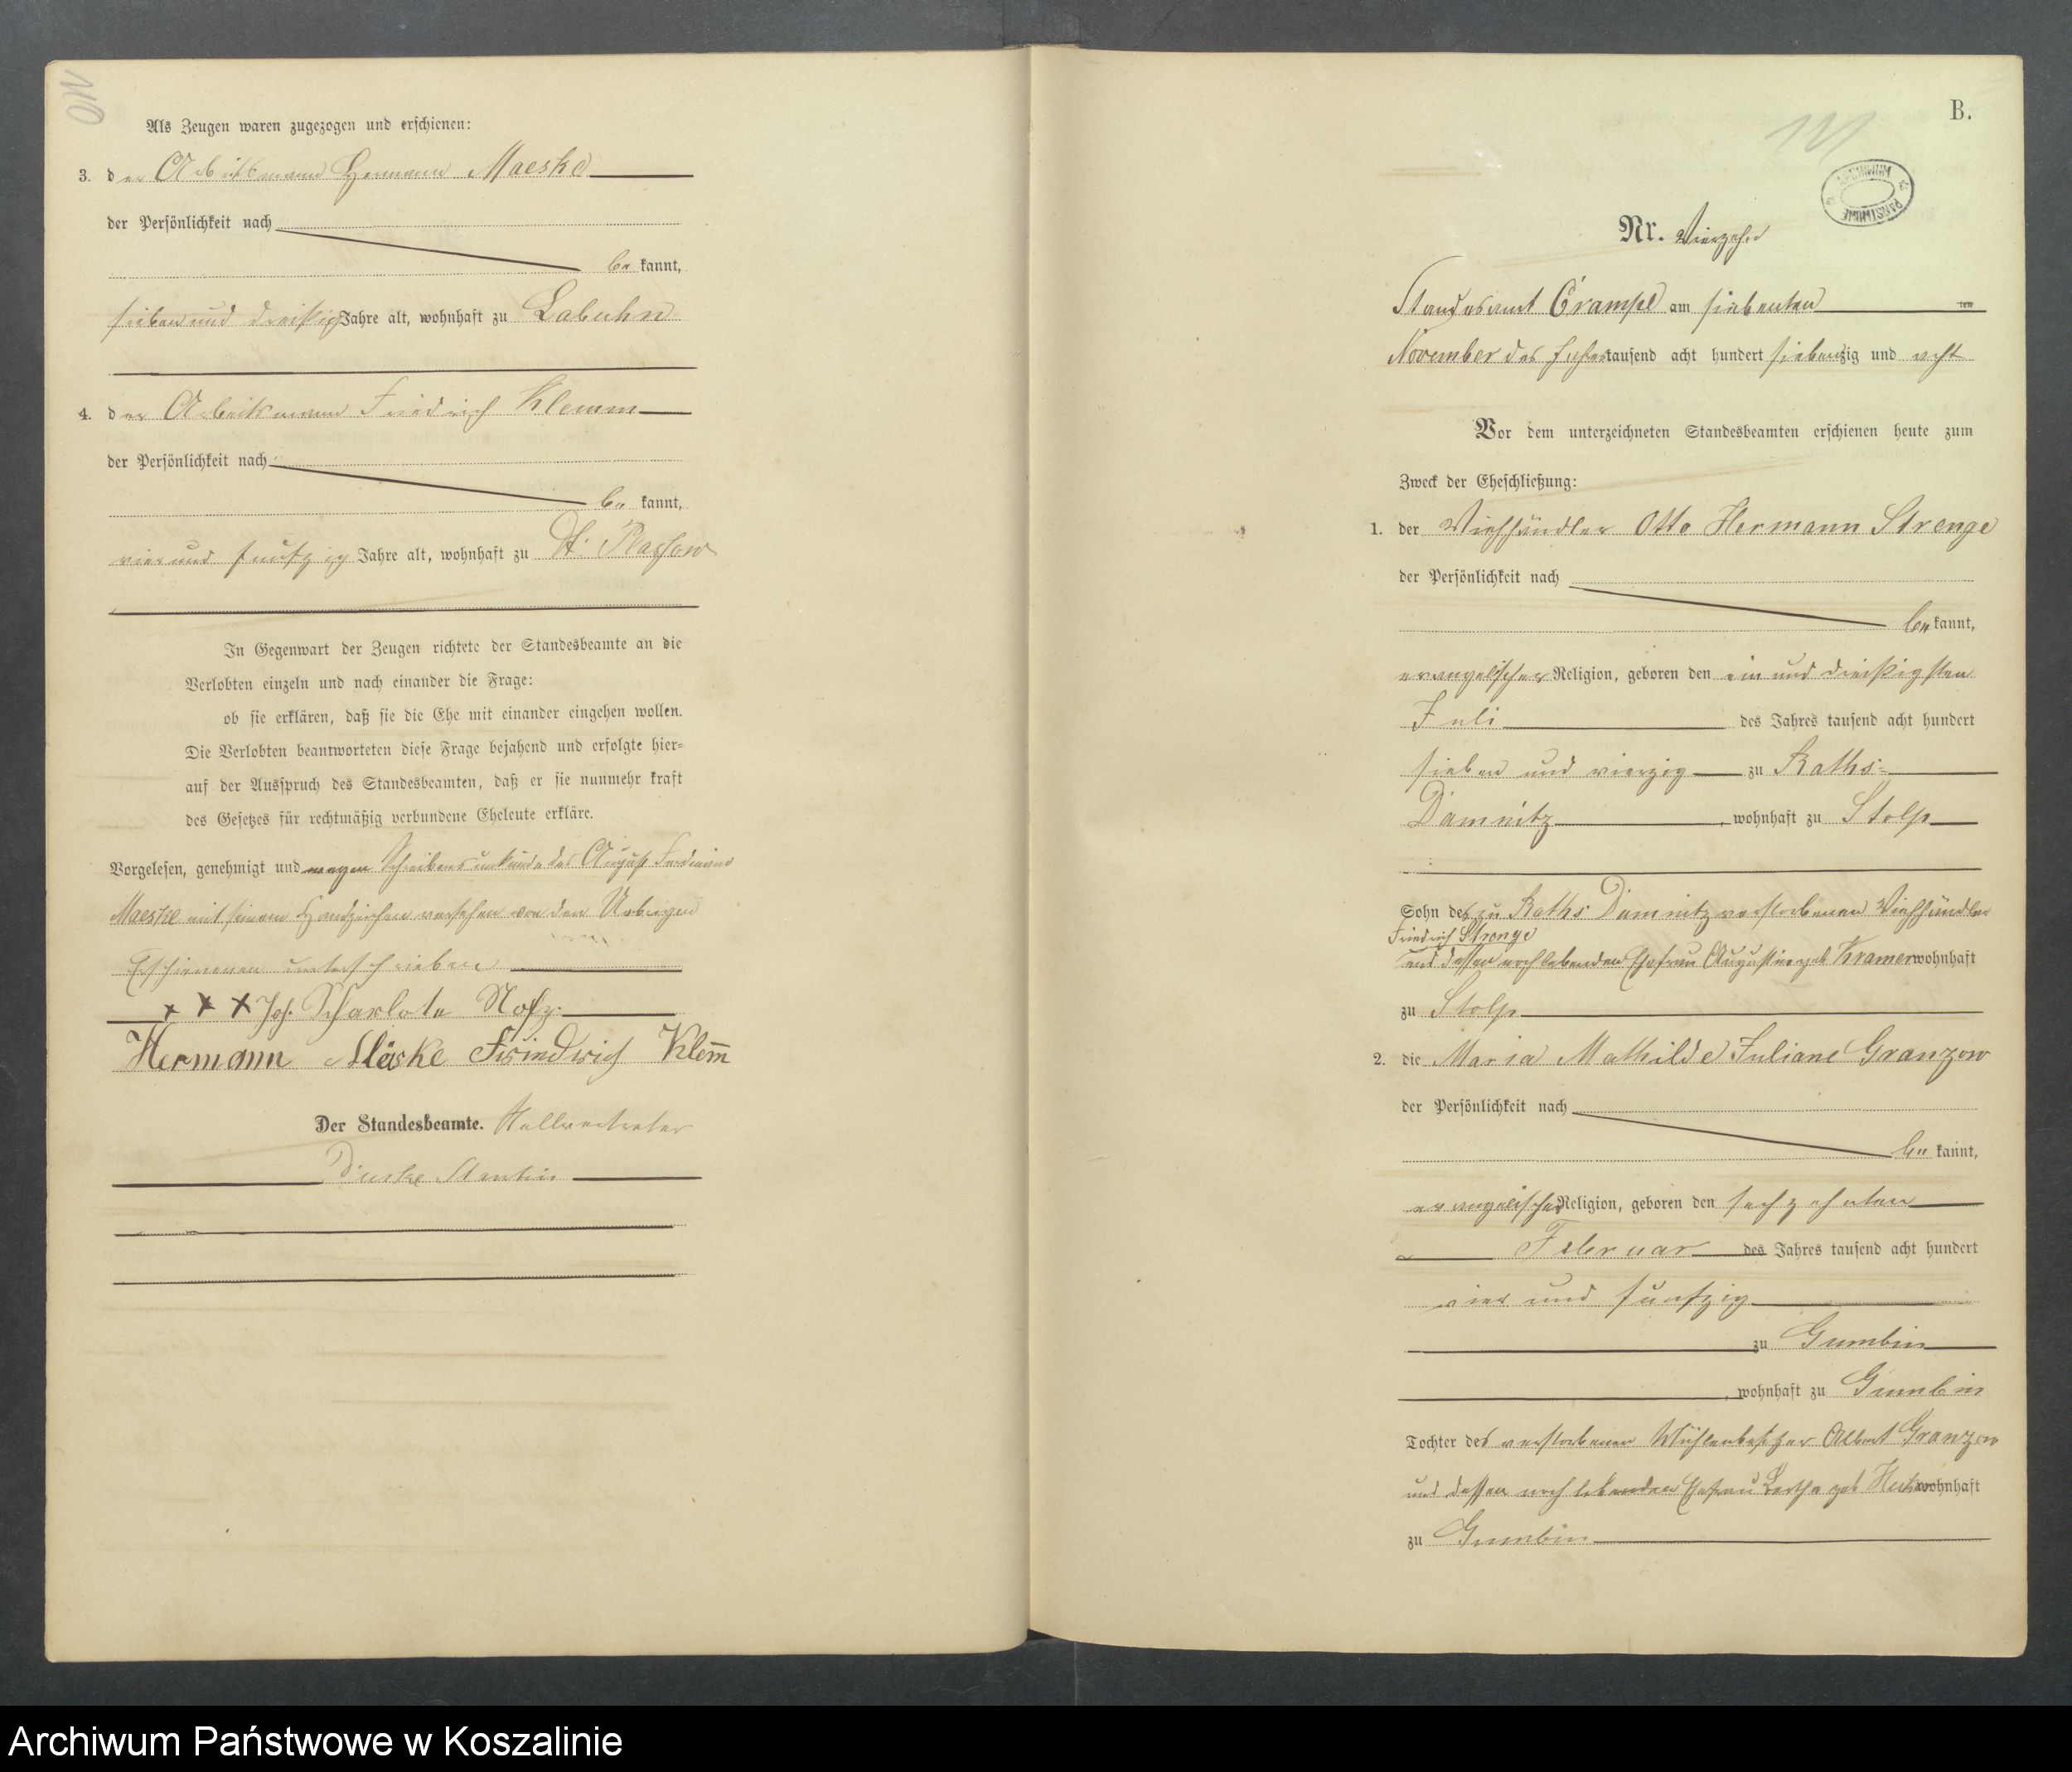 Als Zeugen waren zugezogen und erschienen:
3. der Arbeitsmann Hermann Maeske
der Persönlichkeit nach
be kannt,
sieben und dreißig Jahre alt, wohnhaft zu Labuhn
4. der Arbeitsmann Friedrich Klemm
der Persönlichkeit nach
be kannt,
vier und funfzig Jahre alt, wohnhaft zu Plassow
In Gegenwart der Zeugen richtete der Standesbeamte an die
Verlobten einzeln und nach einander die Frage:
ob sie erklären, daß sie die Ehe mit einander eingehen wollen.
Die Verlobten beantworteten diese Frage bejahend und erfolgte hier-
auf der Ausspruch des Standesbeamten, daß er sie nunmehr kraft
des Gesetzes für rechtmäßig verbundene Eheleute erkläre.
Vorgelesen, genehmigt und wegen Schreibensunkunde des August Ferdinand
Maeske mit seinem Handzeichen versehen von den Uebrigen
Erschienenen unterschrieben
+ + + Joh. Scharlote
Hermann Mäske Friedrich Klem̅
Der Standesbeamte. Stellvertreter
B.
Nr. Vierzehn
Standesamt Crampe am siebenten ten
November des Jahres tausend acht hundert siebenzig und acht
Vor dem unterzeichneten Standesbeamten erschienen heute zum
Zweck der Eheschließung:
1. der Viehhändler Otto Hermann Strenge
der Persönlichkeit nach
be kannt,
evangelischer Religion, geboren den ein und dreißigsten
Juli des Jahres tausend acht hundert
sieben und vierzig zu Raths-
Damnitz, wohnhaft zu Stolp
Sohn des zu Raths Damnitz verstorbenen Viehhändler
Friedrich Strenge
und dessen noch lebenden Ehefrau Augustine geb Kramer wohnhaft
zu Stolp
2. die Maria Mathilde Juliane Granzow
der Persönlichkeit nach
be kannt,
evangelischer Religion, geboren den sechzehnten
Februar des Jahres tausend acht hundert
vier und funfzig
zu Gumbin
, wohnhaft zu Gumbin
Tochter des verstorbenen Mühlenbesitzer Albert Granzow
und dessen noch lebenden Ehefrau Bertha geb wohnhaft
zu Gumbin
Archiwum Państwowe w Koszalinie